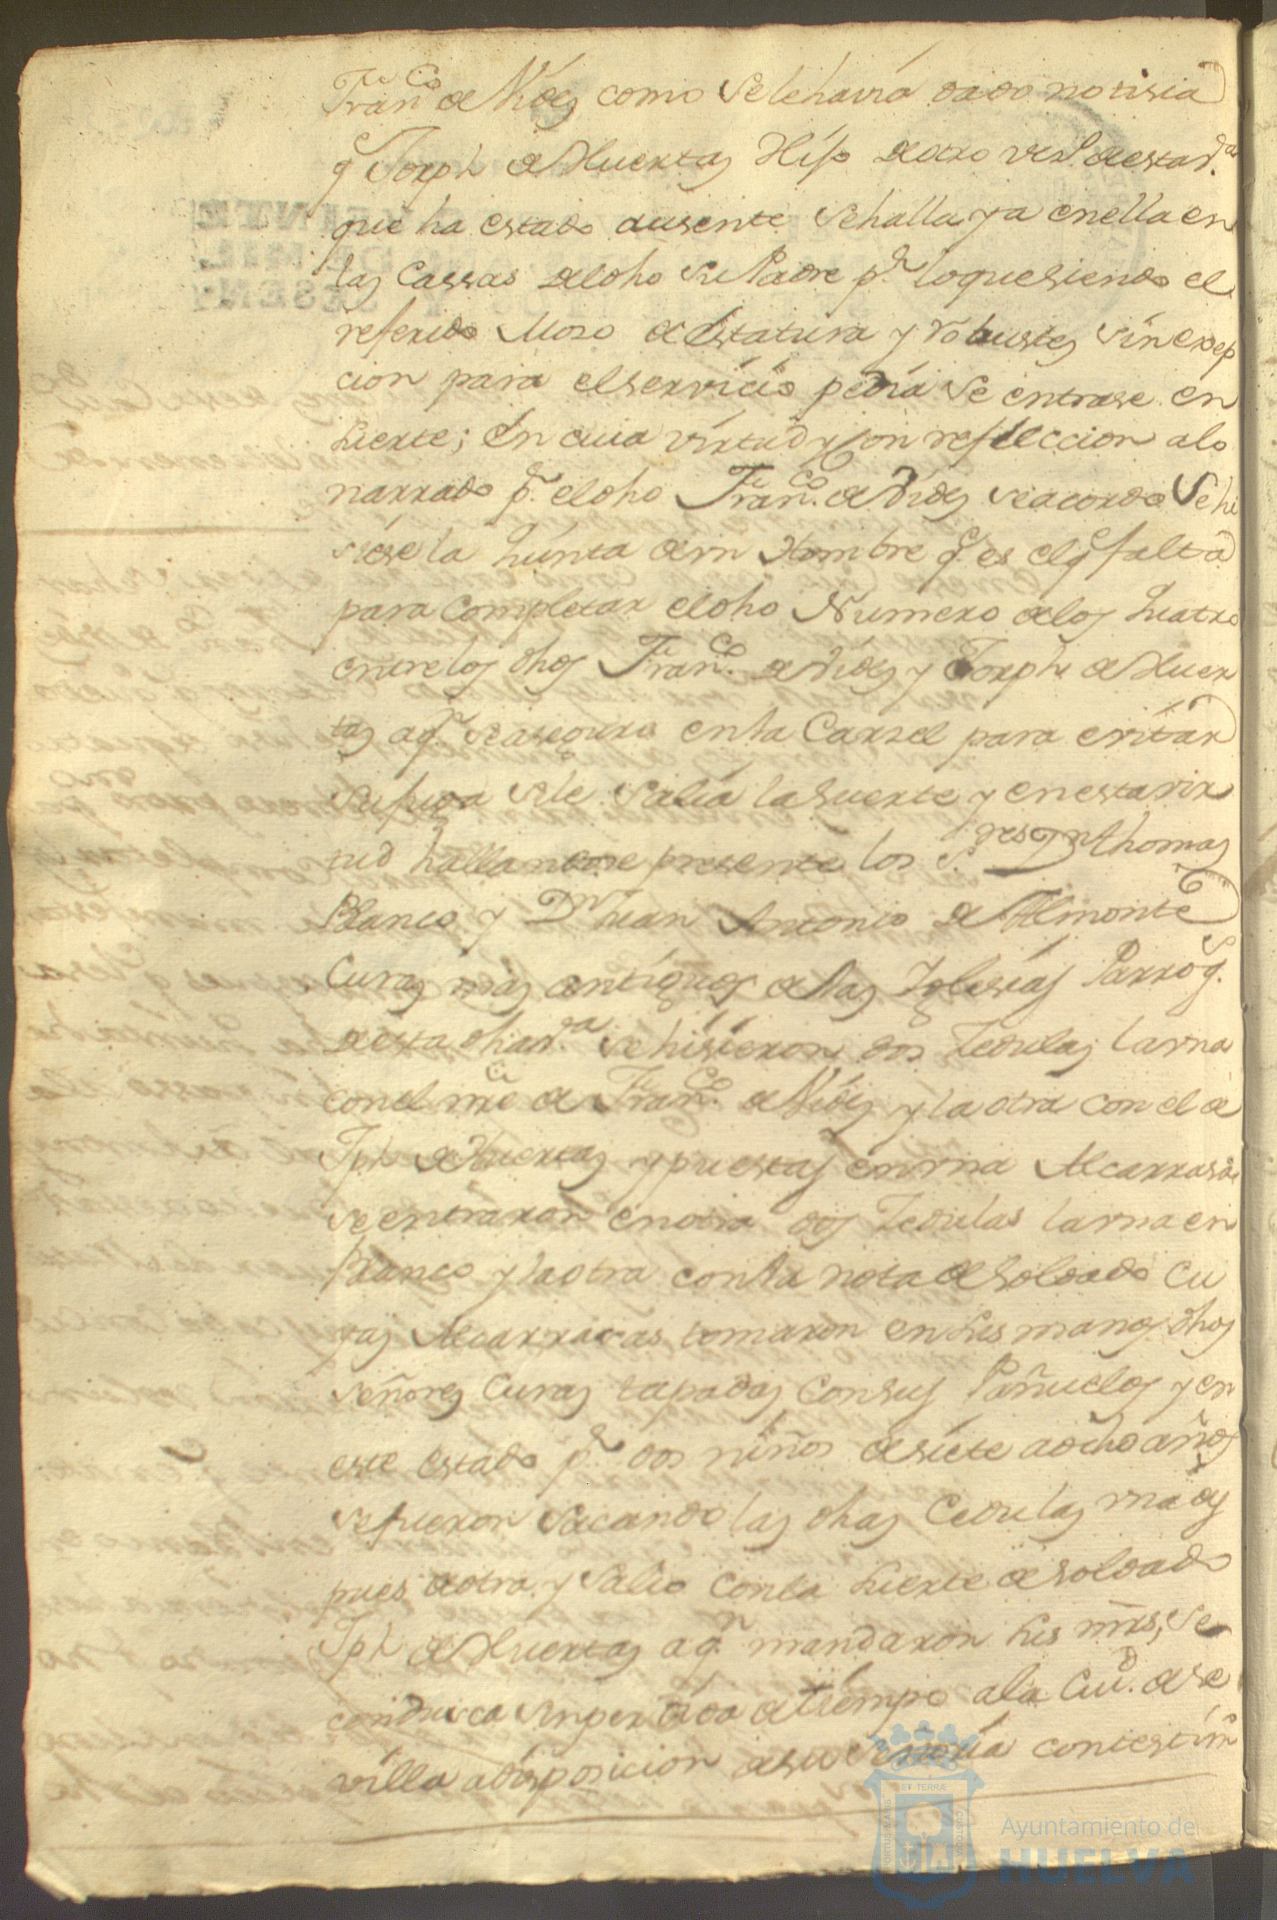 Fran.co de Vides como se le havia dado notisia
q Joseph de Huertas Hijo de otro vez.o de esta v.a
que ha estado ausente se halla ya en ella en
las Cassas del dho su Padre p.r lo que siendo el
referido Moso de Estatura y robustes sin exep
cion para el servicio pedia se entrase en
suerte; En cuia virtud y con refleccion a lo
narrado p.r el dho Fran.co de Vides se acordo se hi
siese la Junta de un Hombre q.e es el q.e falta
para completar el dho Numero de los quatro
entre los dhos Fran.co de Vides y Joseph de Huer
tas a q.n se aseguro en la Carsel para evitar
su fuga si le salia la suerte y en esta vir
tud hallandose presente los S.res D.n Thomas
Blanco y D.n Juan Antonio de Almonte
Curas mas antiguos de las Iglesias Parroq.s
de esta dha v.a se hisieron dos Zedulas la una
con el nre de Fran.co de Vides y la otra con el de
Jph de Huertas y puestas en una Alcarrasa
se entraron en otra dos Zedulas la una en
Blanco y la otra con la nota de Soldado Cu
yas Alcarrasas tomaron en sus manos dhos
señores Curas tapadas con sus Pañuelos y en
este estado p.r dos niños de siete a ocho años
se fueron sacando las dhas Cedulas una des
pues de otra y salio con la suerte de soldado
Jph de Huertas a q.n mandaron sus mrs, se
condusca sin perdida de tiempo a la Ciu.d de Se
villa a disposicion de su Señoria con testim.o
ET TERRÆ
Ayuntamiento de
HUELVA